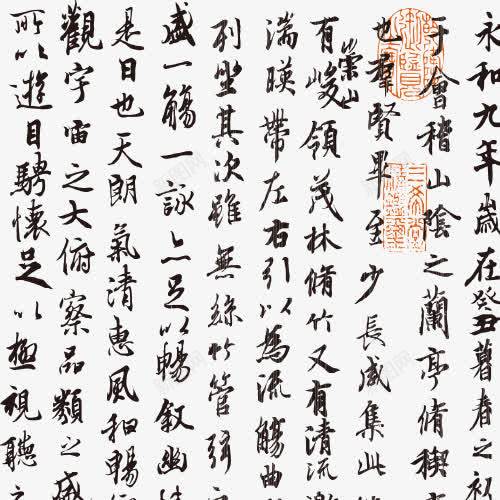 永和九年歲在癸丑暮春之初
于會稽山陰之蘭亭脩禊
也羣賢畢至少長咸集此
有崇山峻領茂林脩竹又有清流激
湍暎帶左右引以為流觴曲
列坐其次雖無絲竹管弦
盛一觴一詠亦足以暢敘幽情
是日也天朗氣清惠風和暢
觀宇宙之大俯察品類之盛
所以遊目騁懷足以極視聽之